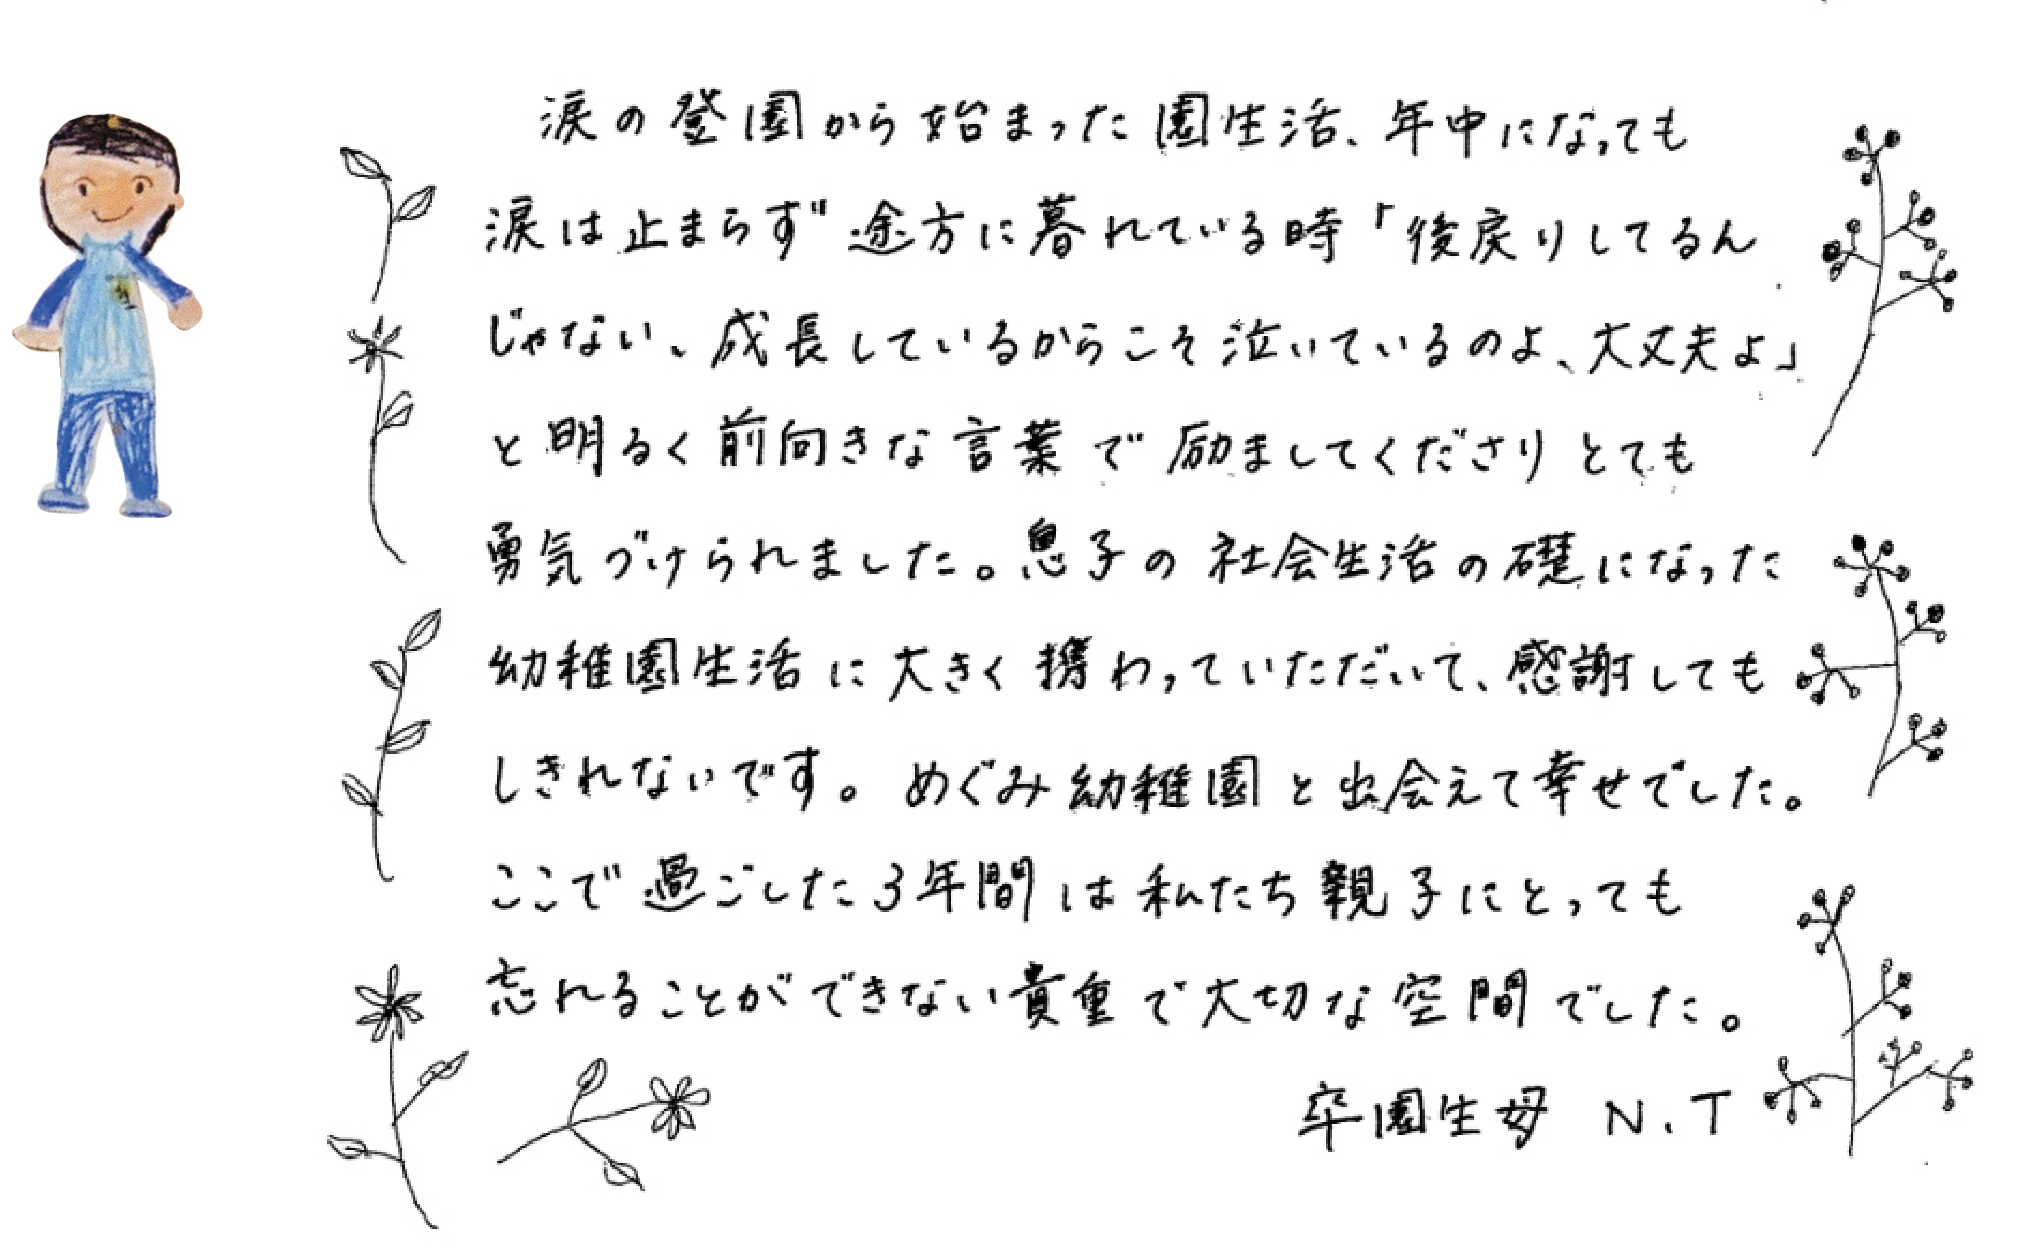 涙の登園から始まった園生活、年中になっても
涙は止まらず途方に暮れている時「後戻りしてるん
じゃない、成長しているからこそ泣いているのよ、大丈夫よ」
と明るく前向きな言葉で励ましてくださりとても
勇気づけられました。息子の社会生活の礎になった
幼稚園生活に大きく携わっていただいて、感謝しても
しきれないです。めぐみ幼稚園と出会えて幸せでした。
ここで過ごした3年間は私たち親子にとっても
忘れることができない貴重で大切な空間でした。
卒園生母 N.T